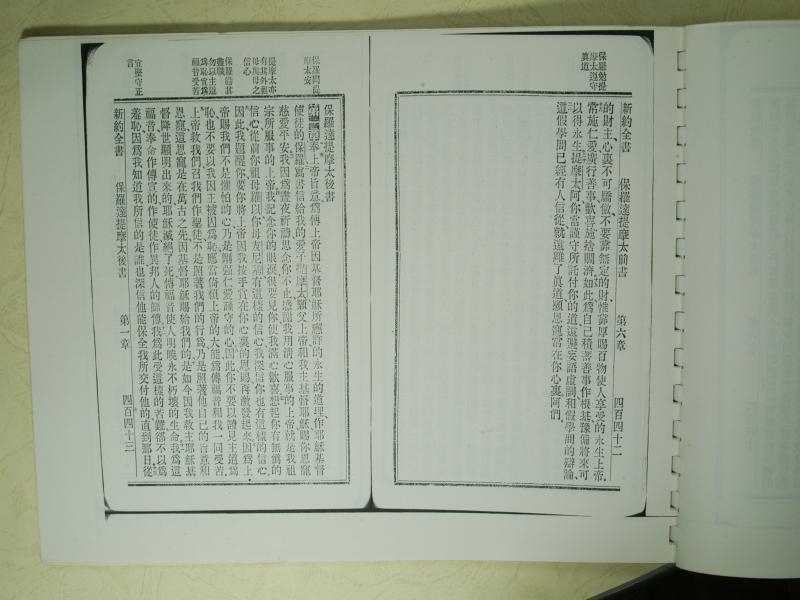 新約全書 保羅達提摩太前書 第六章 四百四十二
保羅勉提
摩太遵守
眞道
的財主、心裏不可驕傲、不要靠無定的財、惟靠厚賜百物使人享受的永生上帝、
常施仁愛、廣行善事、歡喜施捨賙濟、如此爲自己積蓄善事作根基、豫備將來可
以得永生、提摩太阿、你當謹守所託付你的道、遠避妄語虛詞、和假學問的辯論、
這假學問、已經有人信從、就遠離了眞道、願恩寵常在你心裏、阿們、
保羅達提摩太後書
保羅問提
摩太安
提摩太亦
有其外祖
母與母之
信心
保羅勸其
盡職
勿以主道
爲恥宜爲
福音受苦
宜堅守正
言
奉上帝旨意、爲傳上帝因基督耶穌所應許的永生的道理、作耶穌基督
使徒的保羅、寫書信給我的愛子提摩太、願父上帝和我主基督耶穌、賜你恩寵
慈愛平安、我因爲晝夜祈禱思念你不止、感謝我用清心服事的上帝、就是我祖
宗所服事的上帝、我記念你的眼淚、很要見你、使我滿心歡喜、想起你有無僞的
信心、從前你祖母羅以、你母友尼基、有這樣的信心、我深信你也有這樣的信心、
因此我題醒你、要你將上帝因我按手賞在你心裏的恩賜、再激發起來、因爲上
帝賜我們、不是懼怕的心、乃是剛强仁愛謹守的心、因此你不要以證見主道爲
恥、也不要以我因主被囚爲恥、應當倚賴上帝的大能、爲傳福音和我一同受苦、
上帝救我們、召我們作聖徒、不是照著我們的行爲、乃是照著他自己的旨意和
恩寵、這恩寵是在萬古之先、因基督耶穌賜給我們的、是如今因我救主耶穌基
督降世顯明出來的、耶穌滅絕了死、傳福音使人明曉永不朽壞的生命、我爲這
福音奉命作傳宣的、作使徒、作異邦人的師傅、我爲此受這樣的苦難、卻不以爲
羞恥、因爲我知道我所信的是誰、也深信他能保全我所交付他的、直到那日、從
新約全書 保羅達提摩太後書 第一章 四百四十三